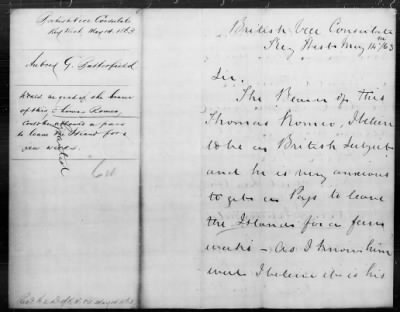 British Vice Consulate
Key West May 14th/63
Sir.
The Bearer of this
Thomas Romeo, I believe
to be a British Subject
and he is very anxious
to get a Pass to leave
the Islands for a few
weeks - As I know him
well I believe it is his
British Vice Consulate
Key West, May 14, 1863
of this, Thomas Romeo,
a pass
to leave the Island for a
few weeks.